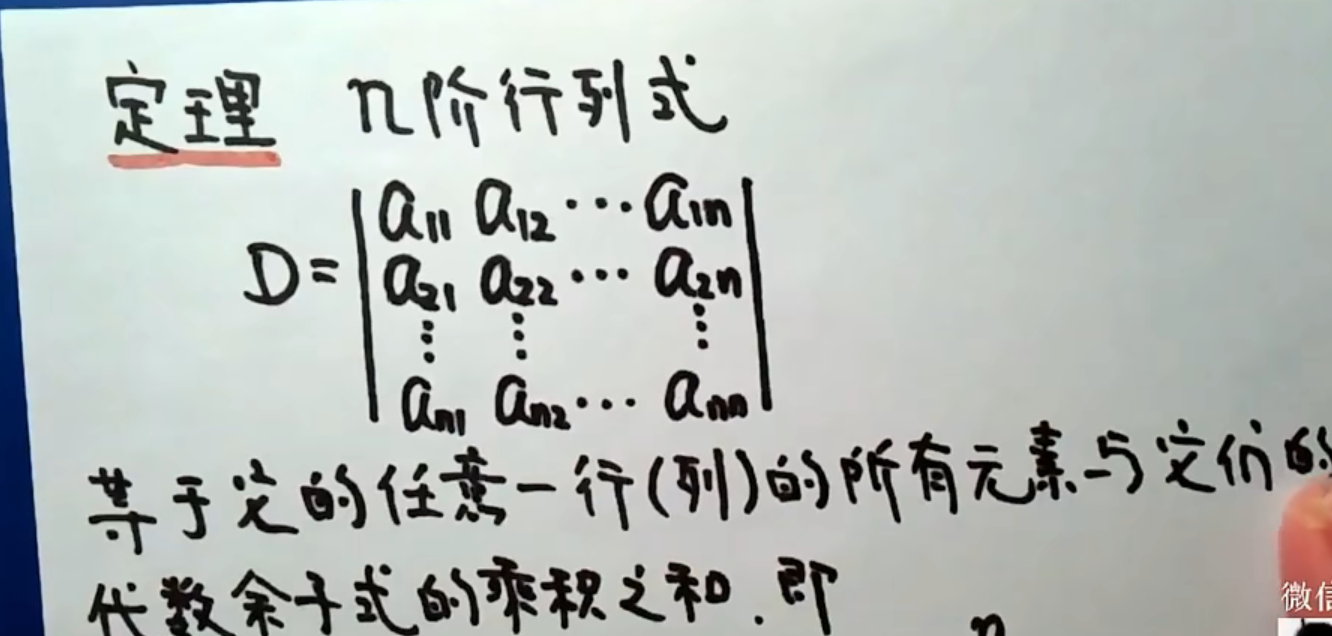 定理 n阶行列式
a₁₁ a₁₂ ⋯ a₁ₙ
D = a₂₁ a₂₂ ⋯ a₂ₙ
⋮ ⋮ ⋮
aₙ₁ aₙ₂ ⋯ aₙₙ
等于它的任意一行(列)的所有元素与它们的
代数余子式的乘积之和.即
n
微信